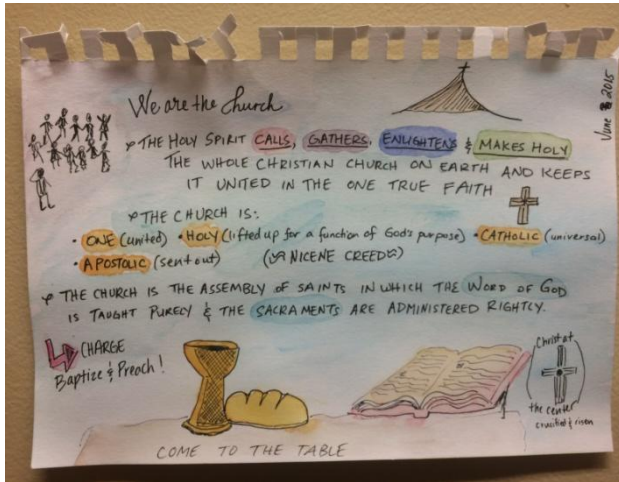 We are the Church
June 2015
THE HOLY SPIRIT CALLS, GATHERS, ENLIGHTENS & MAKES HOLY
THE WHOLE CHRISTIAN CHURCH ON EARTH AND KEEPS
IT UNITED IN THE ONE TRUE FAITH
THE CHURCH IS:
• ONE (united) • HOLY (lifted up for a function of God's purpose) • CATHOLIC (universal)
• APOSTOLIC (sent out) (NICENE CREED)
THE CHURCH IS THE ASSEMBLY OF SAINTS IN WHICH THE WORD OF GOD
IS TAUGHT PURELY & THE SACRAMENTS ARE ADMINISTERED RIGHTLY.
CHARGE
Baptize & Preach!
Christ at
the center
crucified & risen
COME TO THE TABLE